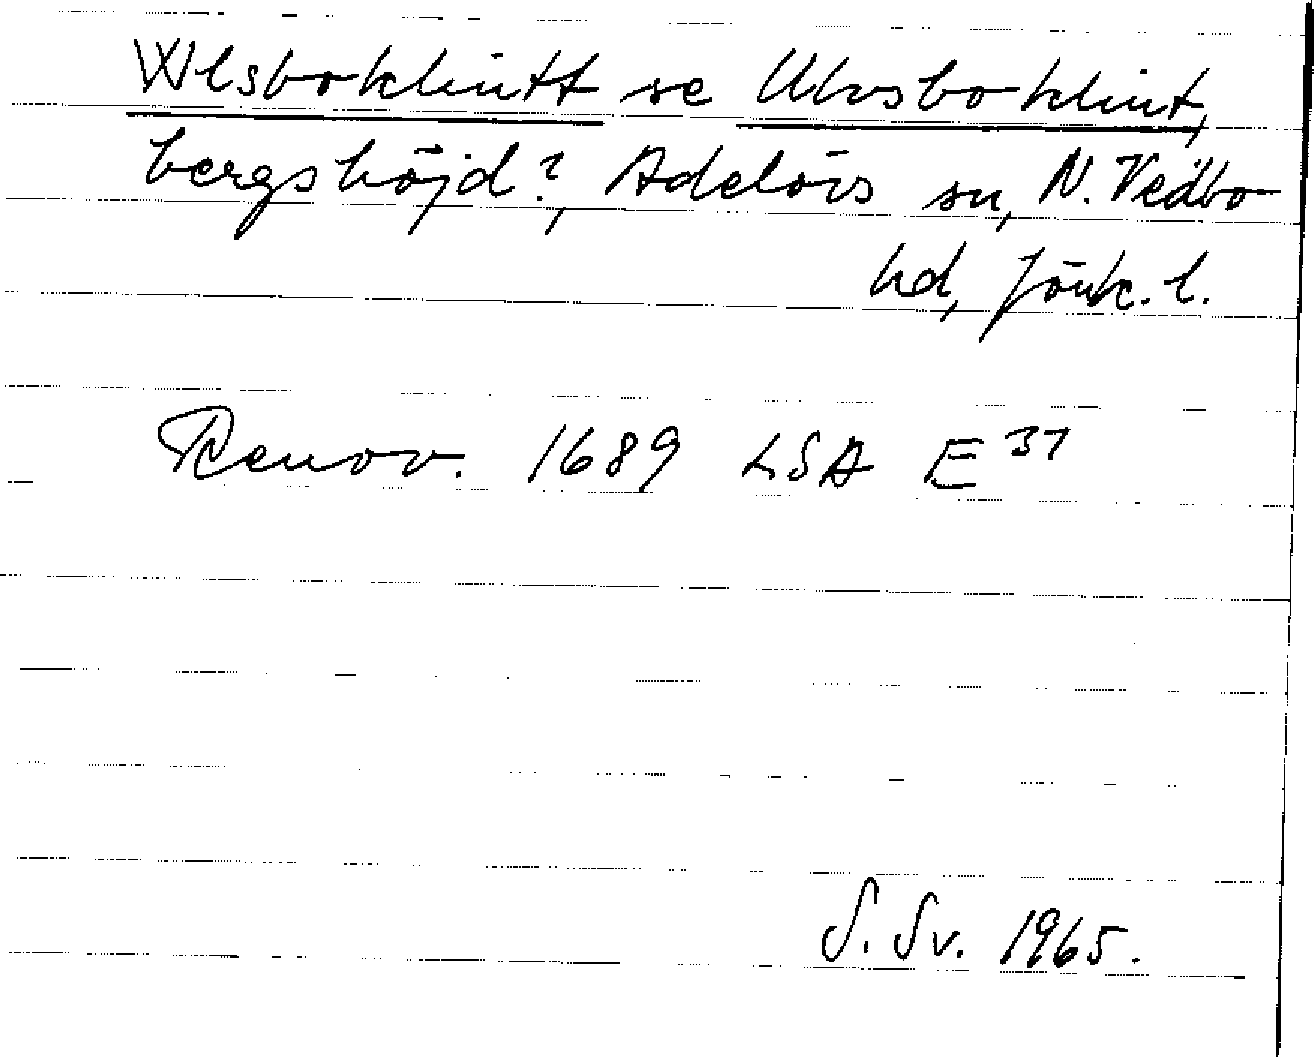 Wlsboklintt se Ulvsboklint,
bergshöjd?, Adelövs sn, N. Vedbo
hd, Jönk. l.
Renov. 1689 LSA E 31
S. Sv. 1965.